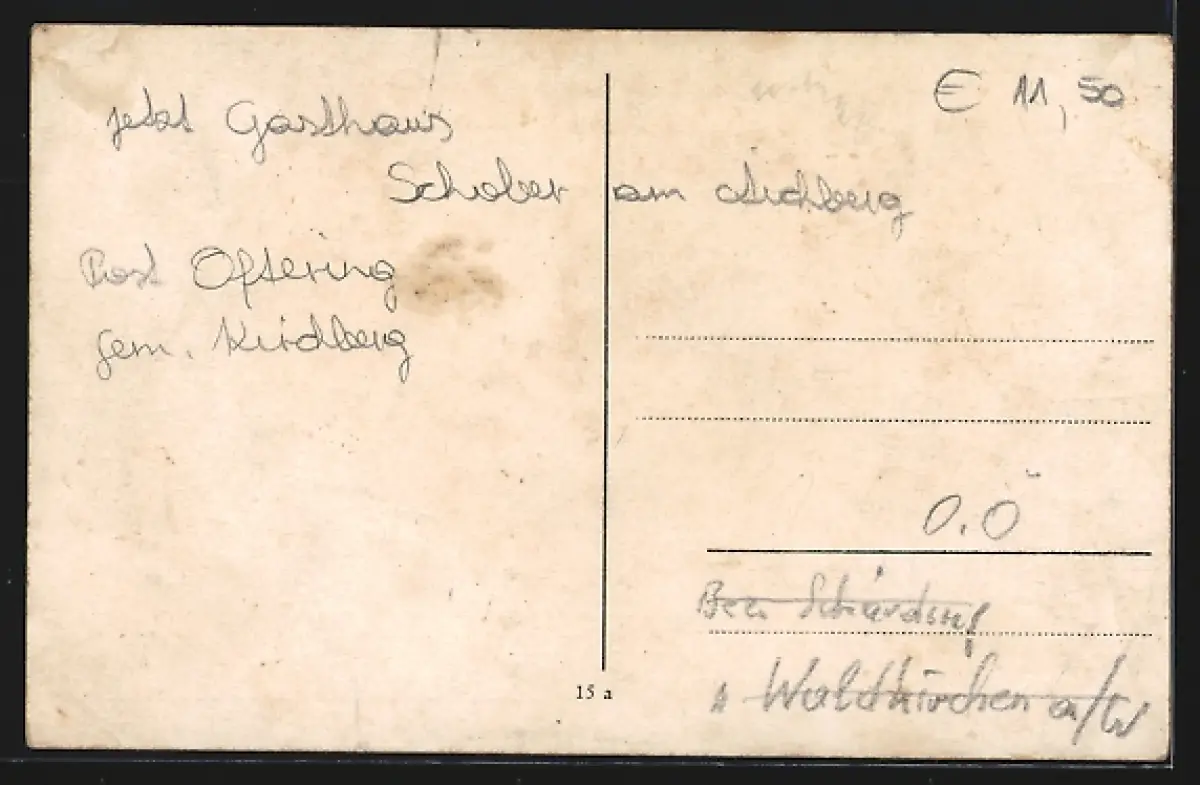 € 11,50
jetzt Gasthaus
Schober am Aichberg
Post Oftering
gem. Kirchberg
O.Ö
Bez. Schärding
Waldkirchen a/W
15 a